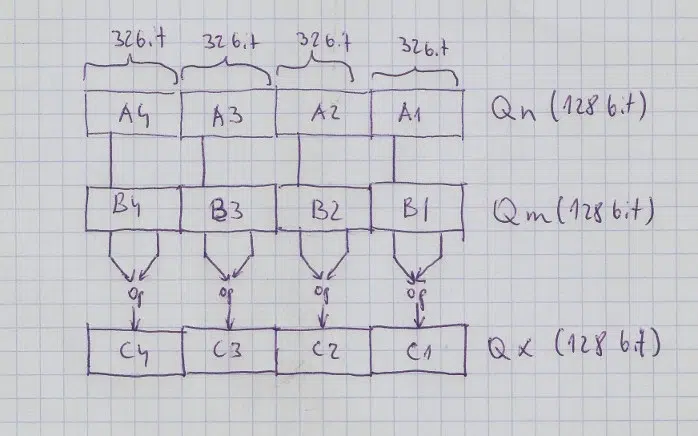 32bit 32bit 32bit 32bit
A4 A3 A2 A1 Qn (128 bit)
B4 B3 B2 B1 Qm (128 bit)
op op op op
C4 C3 C2 C1 Qx (128 bit)